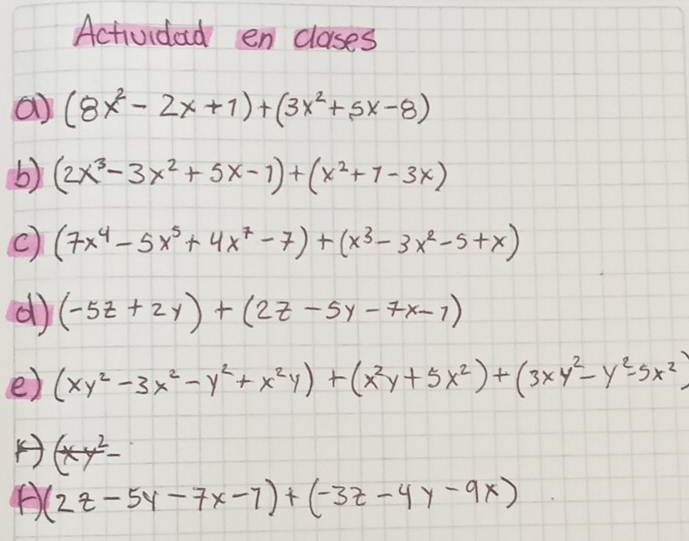 Actividad en clases
a) (8x² - 2x + 1) + (3x² + 5x - 8)
b) (2x³ - 3x² + 5x - 1) + (x² + 1 - 3x)
c) (7x⁴ - 5x⁵ + 4x⁷ - 7) + (x³ - 3x² - 5 + x)
d) (-5z + 2y) + (2z - 5y - 7x - 1)
e) (xy² - 3x² - y² + x²y) + (x²y + 5x²) + (3xy² - y² - 5x²)
f) (xy² -
f) (2z - 5y - 7x - 1) + (-3z - 4y - 9x)